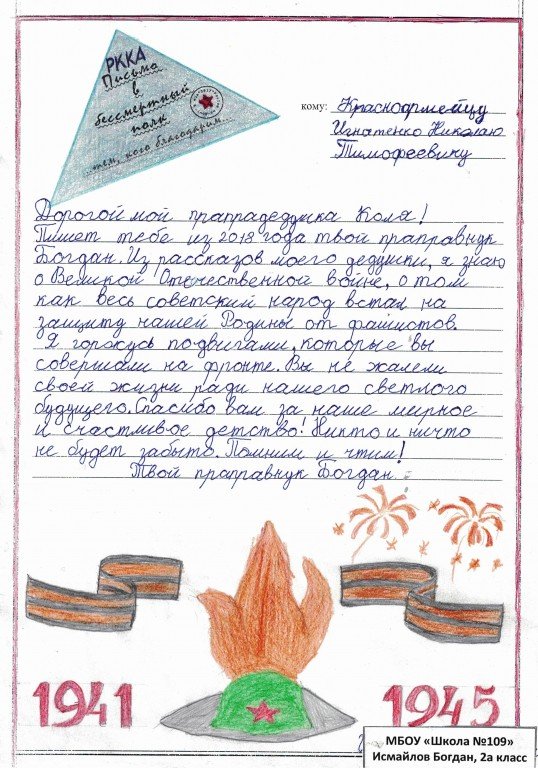 РККА
Письмо
в
бессмертный
полк
...тем, кого благодарим...
кому: Красноармейцу
Игнатенко Николаю
Тимофеевичу
Дорогой мой прапрадедушка Коля!
Пишет тебе из 2018 года твой праправнук
Богдан. Из рассказов моего дедушки, я знаю
о Великой Отечественной войне, о том
как весь советский народ встал на
защиту нашей Родины от фашистов.
Я горжусь подвигами, которые вы
совершали на фронте. Вы не жалели
своей жизни ради нашего светлого
будущего. Спасибо вам за наше мирное
и счастливое детство! Никто и ничто
не будет забыто. Помним и чтим!
Твой праправнук Богдан.
1941
1945
МБОУ «Школа №109»
Исмайлов Богдан, 2а класс